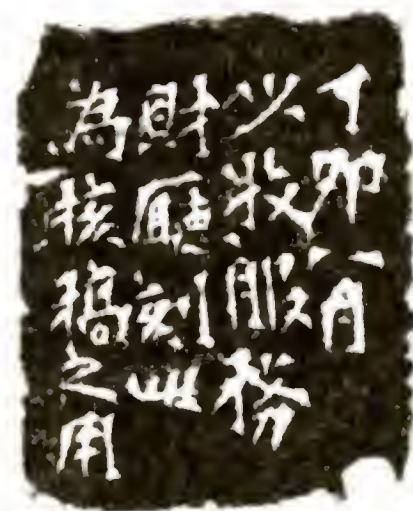 丁卯八月
少牧服務
財廳刻此
為核稿之用